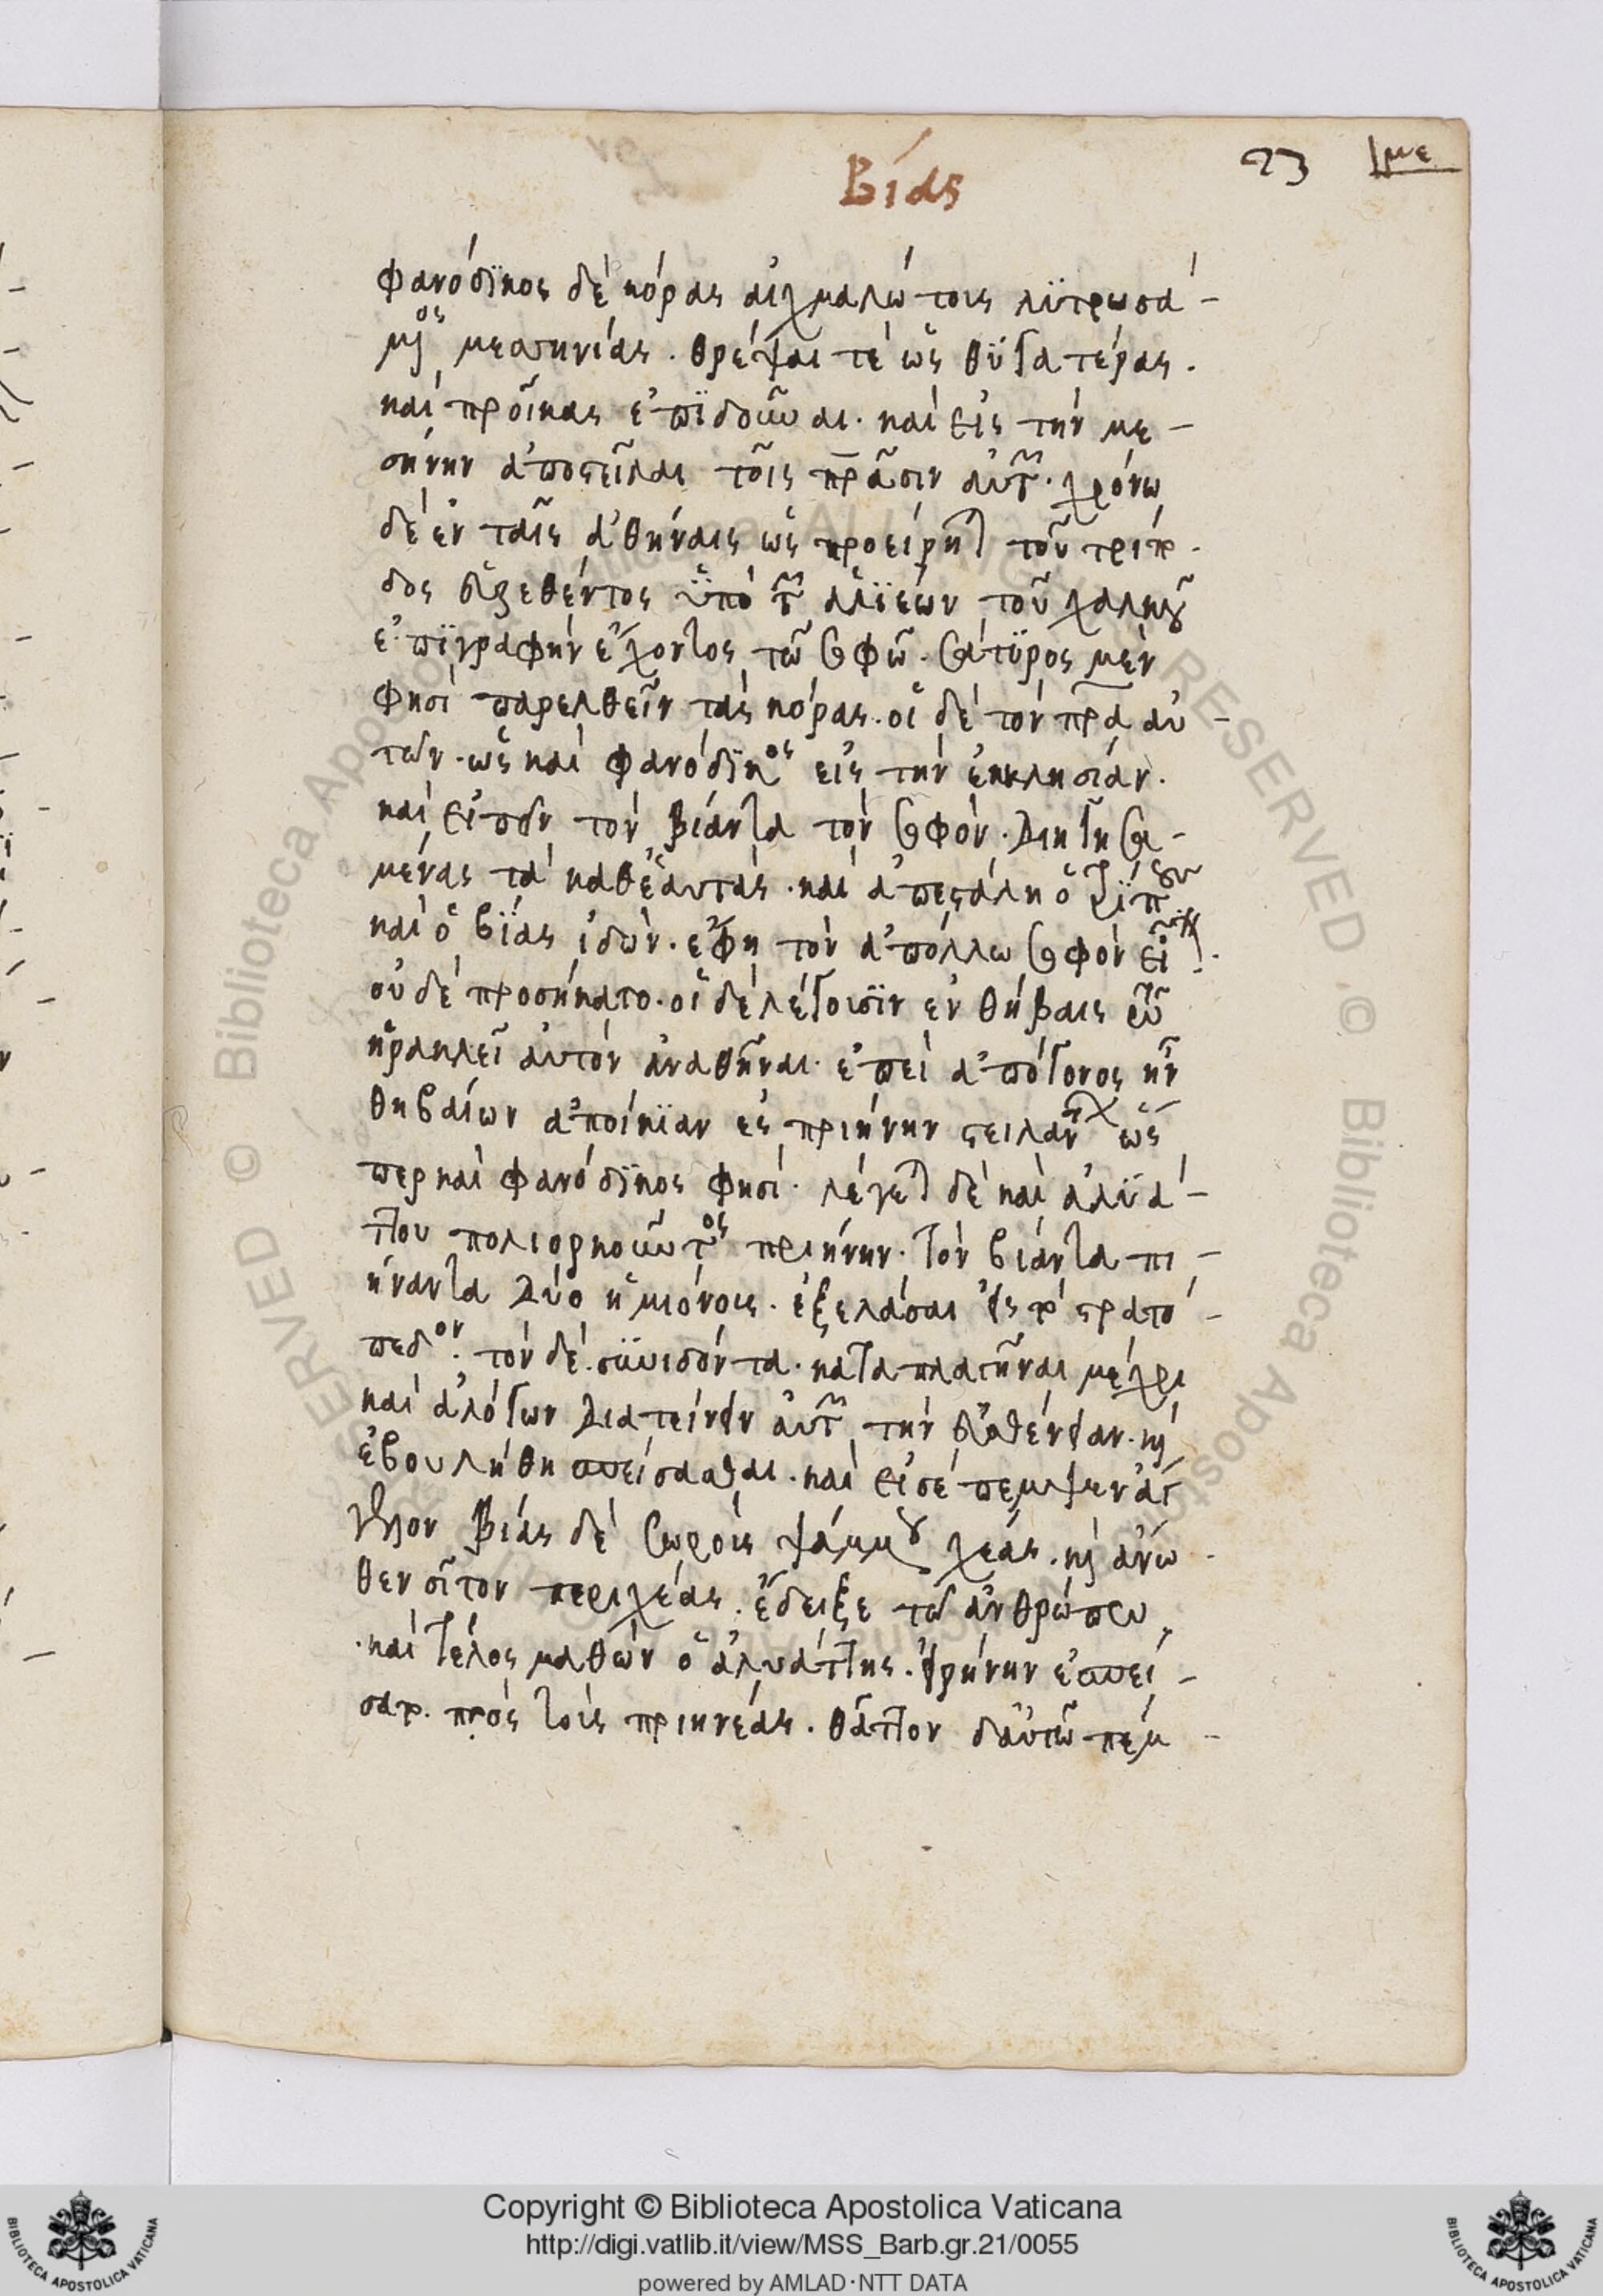 Βίας
23 με
φανόδϊκος δὲ κόρας αἰχμαλώτους λϋτρωσά-
μ(εν)ος μεσσηνίας. θρέψαι τὲ ὡς θϋγατέρας.
καὶ προῖκας ἐπϊδοῦναι. καὶ εἰς τὴν με-
σήνην ἀποστεῖλαι τοῖς πρᾶσιν αὐτῶν. χρόνω
δὲ ἐν ταῖς ἀθήναις ὡς προείρηται τοῦ τρίπο
δος εὑρεθέντος ὑπὸ τῶν ἁλϊέων τοῦ χαλκοῦ
ἐπϊγραφὴν ἔχοντος τῶ σοφῶ. σάτϋρος μὲν
φησὶ παρελθεῖν τὰς κόρας. οἱ δὲ τὸν πρα αὐ-
τῶν. ὡς καὶ φανόδϊκος εἰς τὴν ἐκκλησίαν.
καὶ εἰπεῖν τὸν βίαντα τὸν σοφόν. διηγησα-
μένας τὰ καθ' ἑαυτάς. καὶ ἀπεστάλη ὁ τρίπους
καὶ ὁ βίας ἰδὼν. ἔφη τὸν ἀπόλλω σοφὸν εἶναι.
οὐδὲ προσήκατο. οἱ δὲ λέγουσϊν ἐν θήβαις τῶ
ἡρακλεῖ αὐτὸν ἀναθῆναι. ἐπεὶ ἀπόγονος ἦν
θηβαίων ἀποικϊαν ἐς πριήνην στειλάντων ὥσ
περ καὶ φανόδϊκος φησί. λέγεται δὲ καὶ ἀλϋά-
ττου πολιορκοῦντος πριήνην. τὸν βίαντα πι-
ήναντα δύο ἡμιόνους. ἐξελάσαι εἰς τὸ στρατό-
πεδον. τὸν δὲ. σϋνιδόντα. καταπλαγῆναι μέχρι
καὶ ἀλόγων διατείνειν αὐτῶν τὴν εὐθένειαν. καὶ
ἐβουλήθη σπείσασθαι. καὶ εἰσέπεμψεν ἄγ
γελον βίας δὲ σωροὺς ψάμμου χέας. καὶ ἄνω
θεν σῖτον περιχέας. ἔδειξε τῶ ἀνθρώπω.
καὶ τέλος μαθὼν ὁ ἀλυάττης. εἰρήνην ἐσπεί-
σατο. πρὸς τοὺς πριηνέας. θᾶττον δ' αὐτῶ πέμ-
Copyright © Biblioteca Apostolica Vaticana
http://digi.vatlib.it/view/MSS_Barb.gr.21/0055
powered by AMLAD·NTT DATA